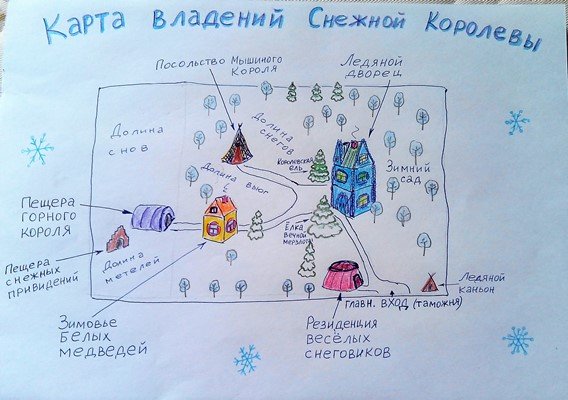 Карта владений Снежной Королевы
Посольство Мышиного
короля
Ледяной
дворец
Долина
снов
Долина
снегов
Королевская
ель
Зимний
сад
Долина вьюг
Пещера
горного
короля
Ёлка
вечной
мерзлоты
Пещера
снежных
привидений
Долина
метелей
Ледяной
каньон
главн. вход (таможня)
Зимовье
белых
медведей
Резиденция
весёлых
снеговиков